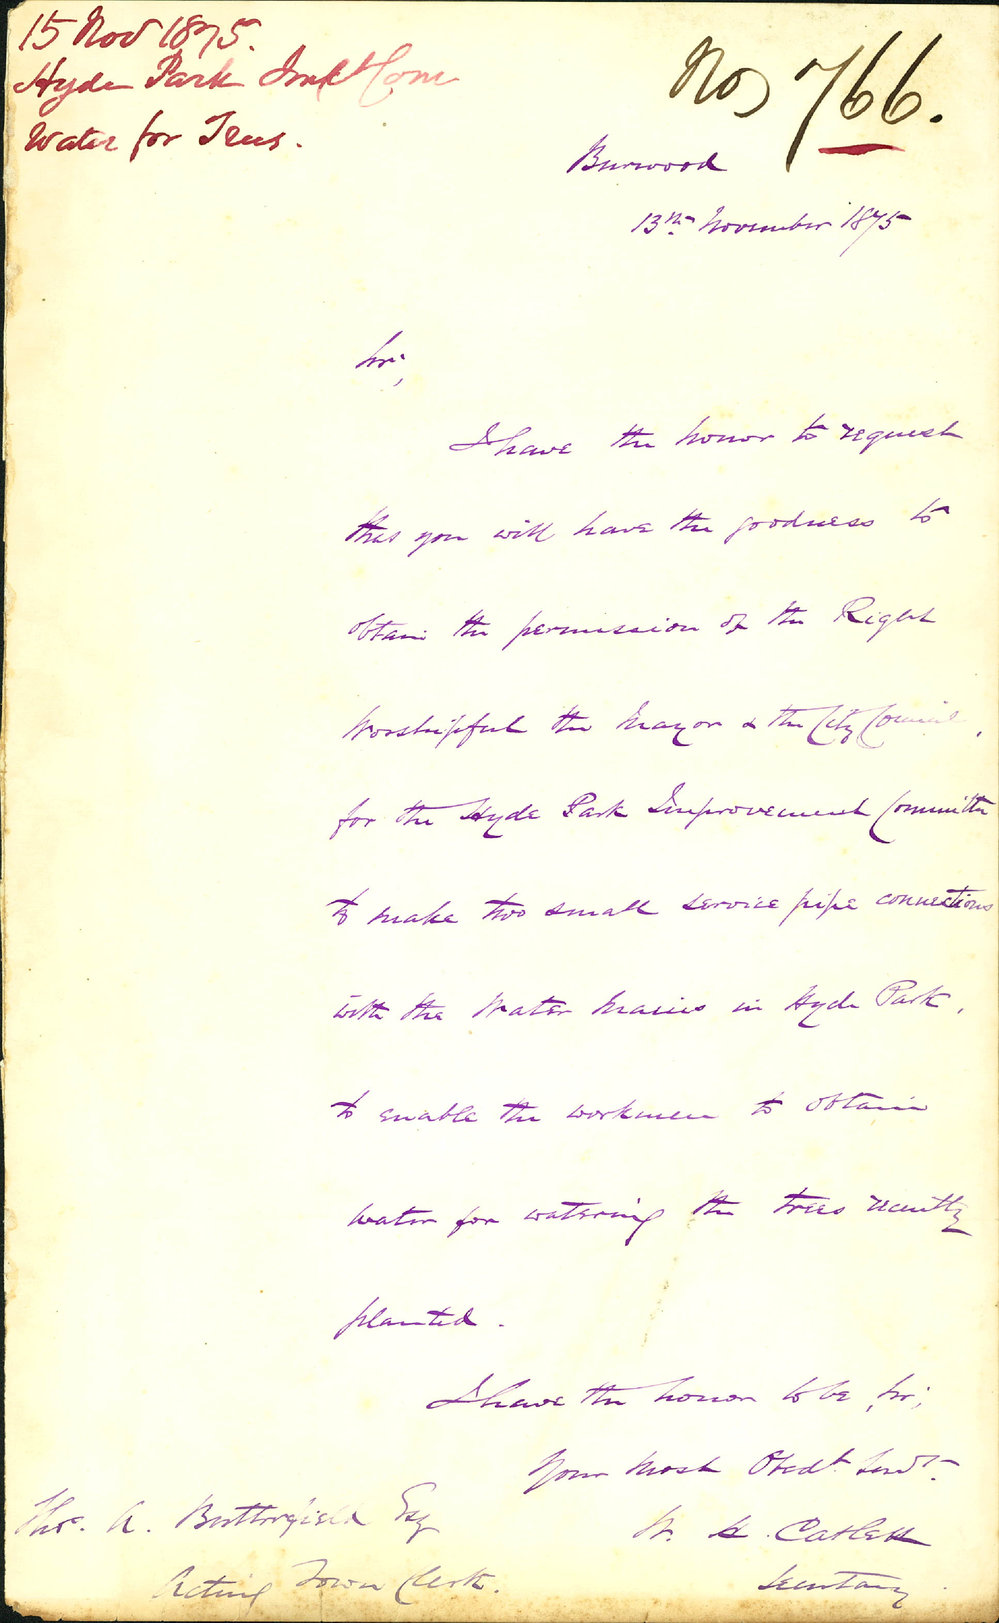 15 Nov 1875.
Hyde Park Imp.t Com
Water for Trees.
No 766.
Burwood
13th November 1875
Sir,
I have the honor to request
that you will have the goodness to
obtain the permission of the Right
Worshipful the Mayor & the City Council,
for the Hyde Park Improvement Committee
to make two small service pipe connections
with the Water Mains in Hyde Park,
to enable the workmen to obtain
water for watering the trees recently
planted.
I have the honor to be, Sir,
Your most Obedt. Servt.
W. H. Catlett
Secretary
Thos. A. Butterfield Esq
Acting Town Clerk.